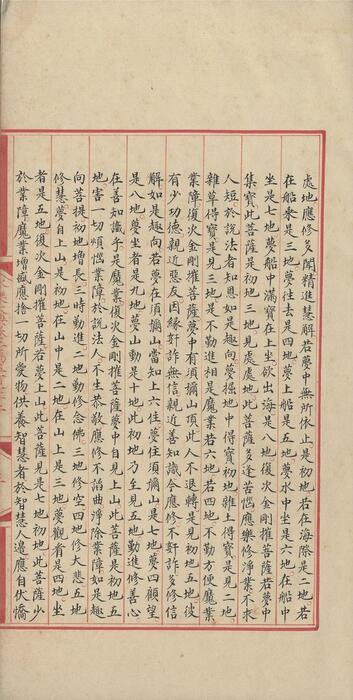 處地應修多聞精進慧解若夢中無所依止是初地若在海際是二地若
在船乘是三地夢往去是四地夢上船是五地夢水中坐是六地在船中
坐是七地夢船中滿寶在上坐欲出海是八地復次金剛摧菩薩若夢中
集寶此菩薩是初地三地見處處此菩薩多逢苦惱應樂修淨業不求
人短於說法者知恩如是趣向夢掘地中得寶初地雜土得寶是見二地
雜草得寶是見三地是不勤進相是魔業若六地若四地不勤方便魔業
業障復次金剛摧菩薩夢中有須彌山頂此人不退轉是見初地五地彼
有少功德親近惡友因緣奸詐無信親近善知識令應修不奸詐多修信
解如是趣向若夢在須彌山當知上六住夢住須彌山是七地夢四顧望
是八地夢坐者是九地夢山動是十地此初地乃至見五地勤進修善心
在善知識乎是魔業復次金剛摧菩薩夢中自見上山此菩薩是初地五
地害一切煩惱業障於說法人不生恭敬應修不諂曲淨除業障如是趣
向菩提初地增長三時勤進二地勤修念佛三地修空四地修大悲五地
修慧夢自上山是初地在山中是二地在山上是三地夢觀看是四地坐
者是五地復次金剛摧菩薩若夢上山此菩薩見是七地初地此菩薩少
於業障魔業增盛應捨一切所愛物供養智慧者於智慧人邊應自伏憍